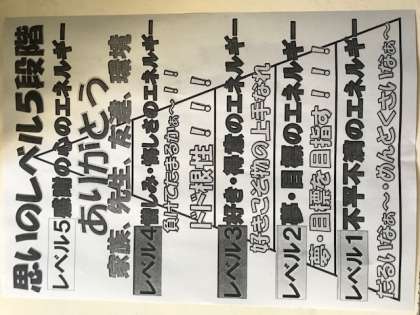 思いのレベル5段階
レベル5感謝の心のエネルギー
ありがとう
家族、先生、友達、環境
レベル4憎しみ・悔しさのエネルギー
負けてたまるかぁ〜!!!
ド根性!!!
レベル3好き・得意のエネルギー
好きこそ物の上手なれ
レベル2夢・目標のエネルギー
夢・目標を目指す!!!
レベル1不平不満のエネルギー
だるいなぁ〜・めんどくさいなぁ〜